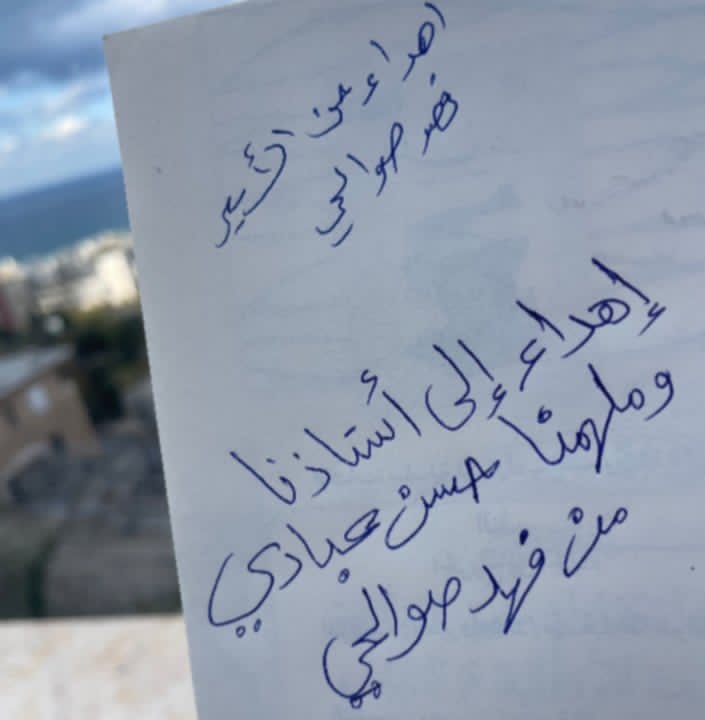 اهداء من الأسير
فهد صوالحي
إهداء إلى أستاذنا
وملهمنا حسن عبادي
من فهد صوالحي